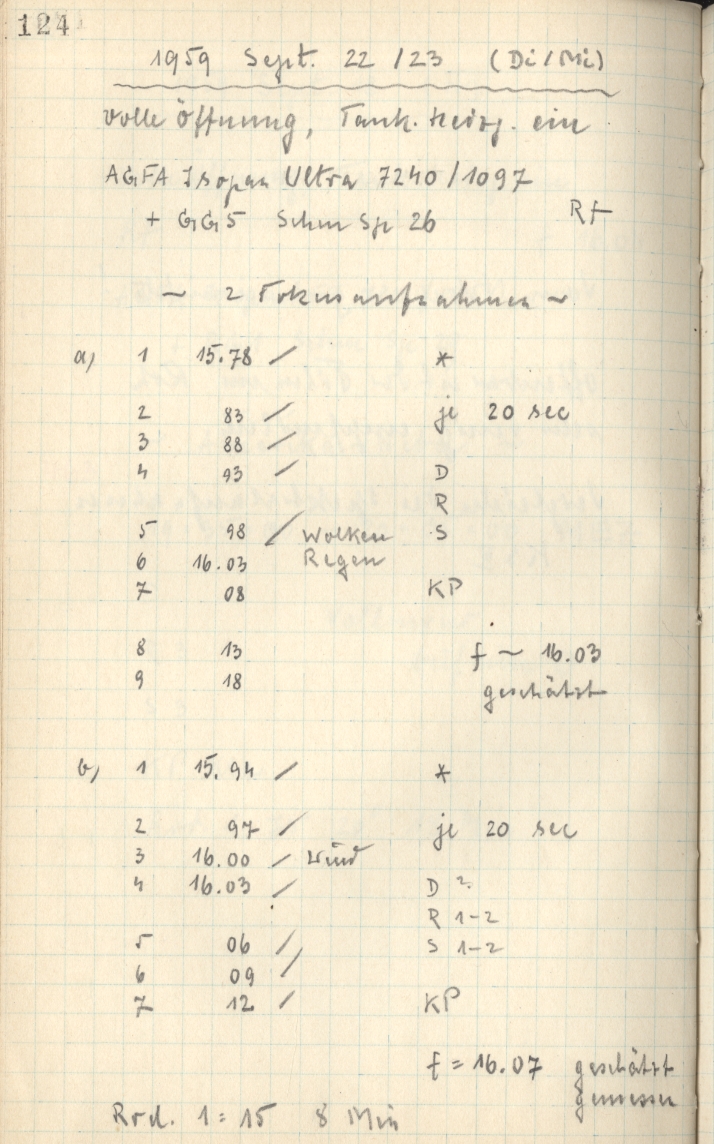 124
1959 Sept. 22 / 23 (Di/Mi)
volle Öffnung, Tauk. Heizg. ein
AGFA Isopan Ultra 7240/1097
+ GG5 Schm Sp 26 Rf
~ 2 Fokusaufnahmen ~
a) 1 15.78 / *
2 83 / je 20 sec
3 88 /
4 93 / D
R
5 98 / Wolken S
6 16.03 Regen
7 08 KP
8 13 f ~ 16.03
9 18 geschätzt
b) 1 15.94 / *
2 97 / je 20 sec
3 16.00 / Wind
4 16.03 / D 2
R 1-2
5 06 / S 1-2
6 09 /
7 12 / KP
f = 16.07 geschätzt
gemessen
Rod. 1:15 8 Min